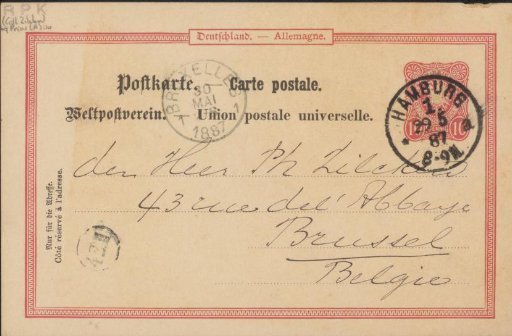 R P K
Deutschland. — Allemagne.
Postkarte. Carte postale.
Weltpostverein. Union postale universelle.
BRUXELLES
1 30 1
MAI
1887
HAMBURG
1.
29 5
87
* d
8-9N.
10
den Heer Ph Zilcken
43 rue del' Abbaye
Brussel
Belgie
Nur für die Adresse.
Côté réservé à l'adresse.